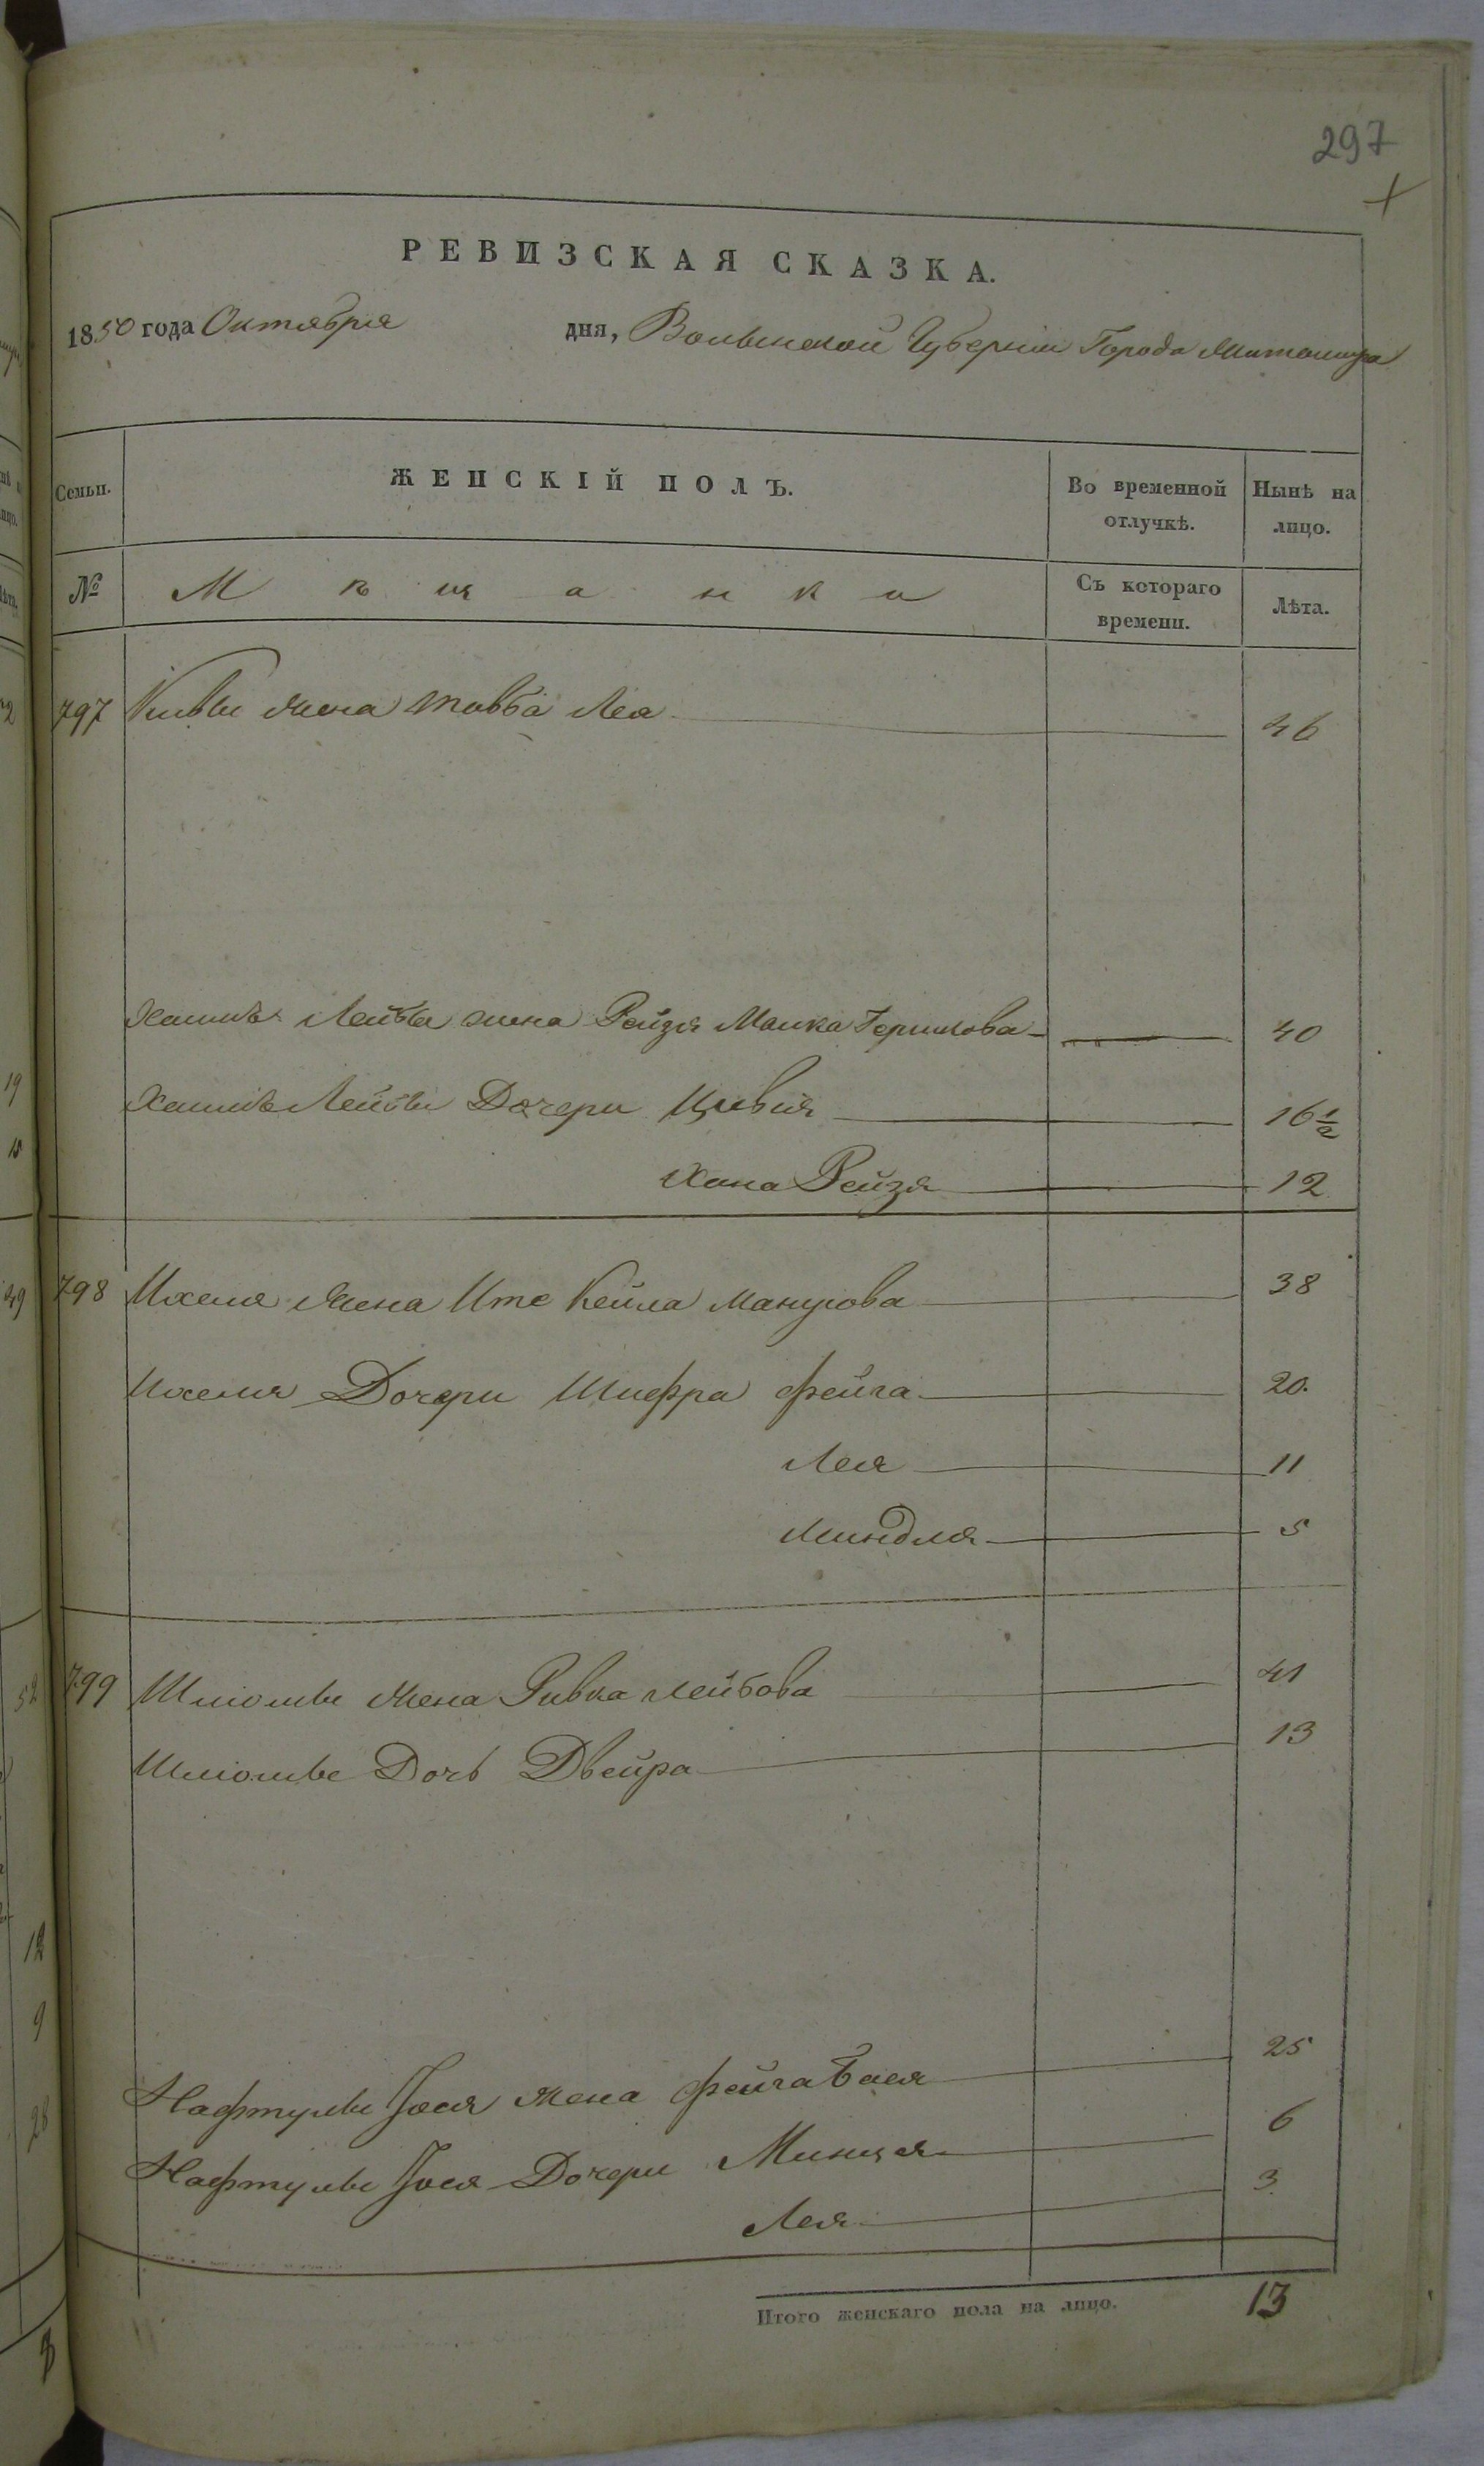 297
РЕВИЗСКАЯ СКАЗКА.
1850 года Октября дня, Волынской Губернии Города Житомира
Семьи. ЖЕНСКІЙ ПОЛЪ. Во временной отлучкѣ. Нынѣ на лицо.
№ Мѣщанки Съ котораго времени. Лѣта.
797 жена Товба Лея 46
Лейбы жена Рейзя Малка Гершкова 40
Лейбы Дочери Цивія 16 1/2
Хана Рейзя 12
798 Ихеля жена Ите Кейла Манусова 38
Ихеля Дочери Шифра Фейга 20.
Лея 11
Миндля 5
799 Шліомы жена Ривка Лейбова 41
Шліомы Дочь Двейра 13
Нафтулы Іося жена Фейга Бася 25
Нафтулы Іося Дочери Минця 6
Лея 3
Итого женскаго пола на лицо. 13